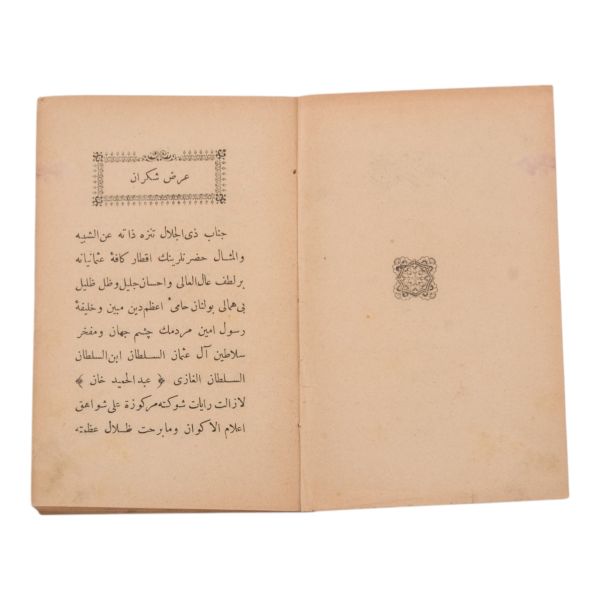 عرض شكران
جناب ذی‌الجلال تنزه ذاته عن‌الشبه
والمثال حضرتلرينك اقطار كافهٔ عثمانيانه
برلطف عال‌العالی و احسان جليل و ظل ظليل
بی همالی بولنان حامیٔ اعظم دين مبين و خليفهٔ
رسول امين مردمك چشم جهان و مفخر
سلاطين آل عثمان السلطان ابن‌السلطان
السلطان الغازی ﴿ عبدالحميد خان ﴾
لازالت رايات شوكته مركوزة علی شواهق
اعلام الاكوان ومابرحت ظلال عظمته